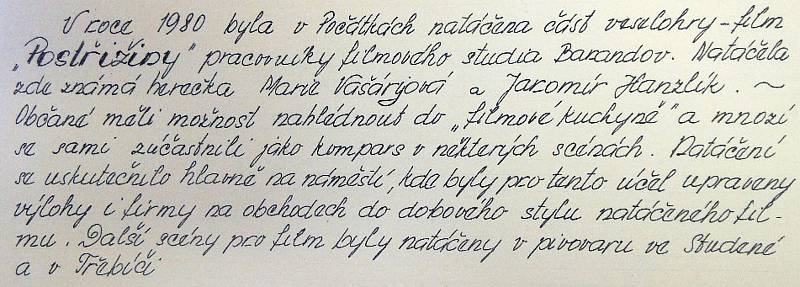 V roce 1980 byla v Počátkách natáčena část veselohry - film
„Postřižiny" pracovníky filmového studia Barandov. Natáčela
zde známá herečka Marie Vašáryová a Jaromír Hanzlík. ~
Občané měli možnost nahlédnout do „filmové kuchyně" a mnozí
se sami zúčastnili jako kompars v některých scénách. Natáčení
se uskutečnilo hlavně na náměstí, kde byly pro tento účel upraveny
výlohy i firmy na obchodech do dobového stylu natáčeného fil-
mu. Další scény pro film byly natáčeny v pivovaru ve Studené
a v Třebíči